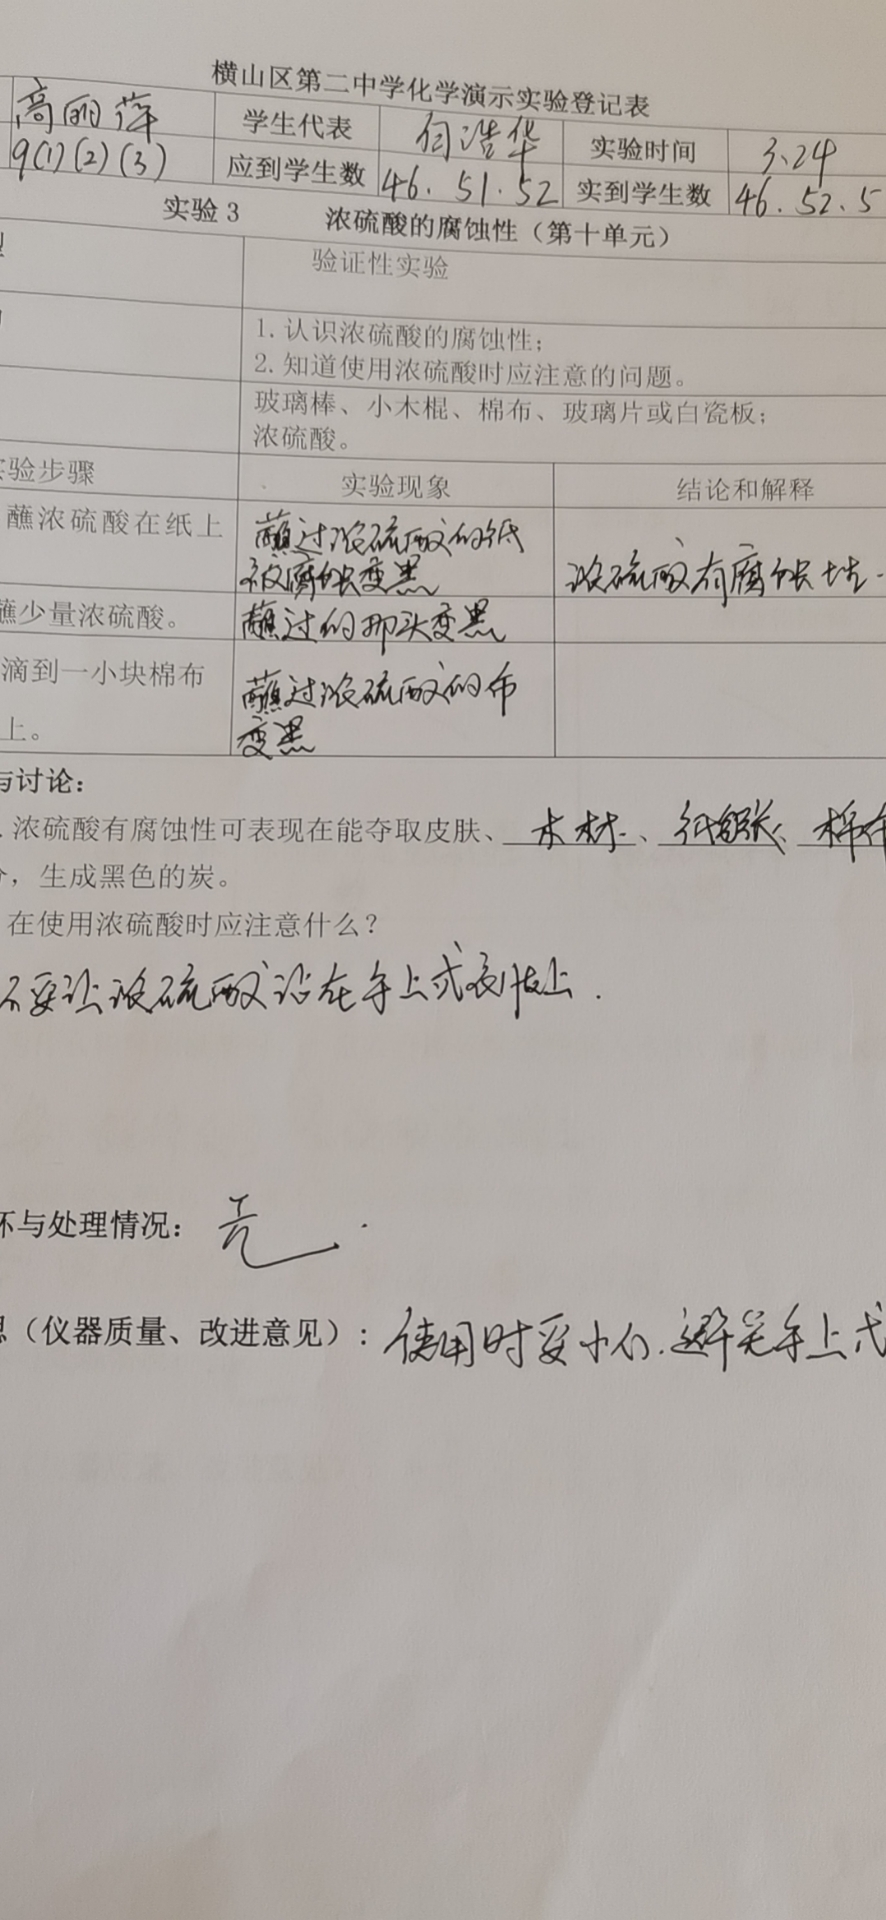 横山区第二中学化学演示实验登记表
高丽萍 学生代表 白浩华 实验时间 3.24
9(1)(2)(3) 应到学生数 46.51.52 实到学生数 46.52.5
实验3 浓硫酸的腐蚀性（第十单元）
型 验证性实验
1. 认识浓硫酸的腐蚀性；
2. 知道使用浓硫酸时应注意的问题。
玻璃棒、小木棍、棉布、玻璃片或白瓷板；
浓硫酸。
实验步骤 实验现象 结论和解释
蘸浓硫酸在纸上 蘸过浓硫酸的纸
被腐蚀变黑 浓硫酸有腐蚀性.
蘸少量浓硫酸。 蘸过的那头变黑
滴到一小块棉布 蘸过浓硫酸的布
上。 变黑
与讨论：
. 浓硫酸有腐蚀性可表现在能夺取皮肤、木材、纸张、棉布
分，生成黑色的炭。
在使用浓硫酸时应注意什么？
不要让浓硫酸沾在手上或衣服上.
坏与处理情况：无.
思（仪器质量、改进意见）：使用时要小心.避免手上或